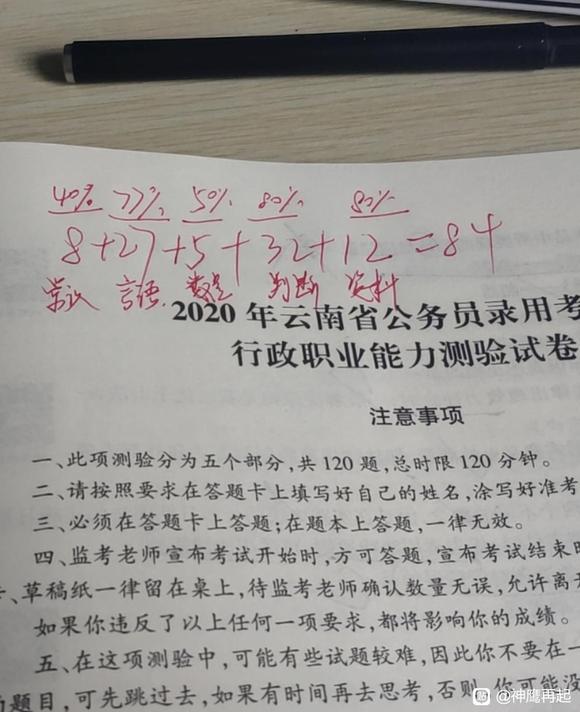 40% 77% 50% 80% 80%
8+27+5+32+12=84
常识 言语 数量 判断 资料
2020年云南省公务员录用考
行政职业能力测验试卷
注意事项
一、此项测验分为五个部分,共120题,总时限120分钟。
二、请按照要求在答题卡上填写好自己的姓名,涂写好准考
三、必须在答题卡上答题;在题本上答题,一律无效。
四、监考老师宣布考试开始时,方可答题,宣布考试结束时
、草稿纸一律留在桌上,待监考老师确认数量无误,允许离
如果你违反了以上任何一项要求,都将影响你的成绩。
五、在这项测验中,可能有些试题较难,因此你不要在一
题目,可先跳过去,如果有时间再去思考,否则,你可能没
知 @神鹰再起